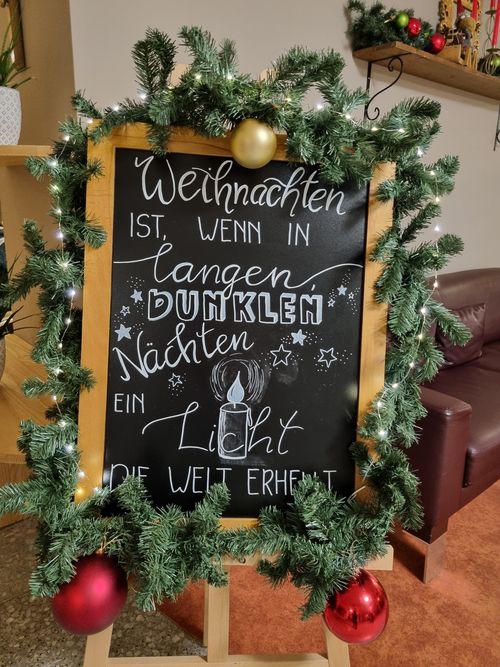 Weihnachten
IST, WENN IN
langen,
DUNKLEN
Nächten
EIN
Licht
DIE WELT ERHELLT